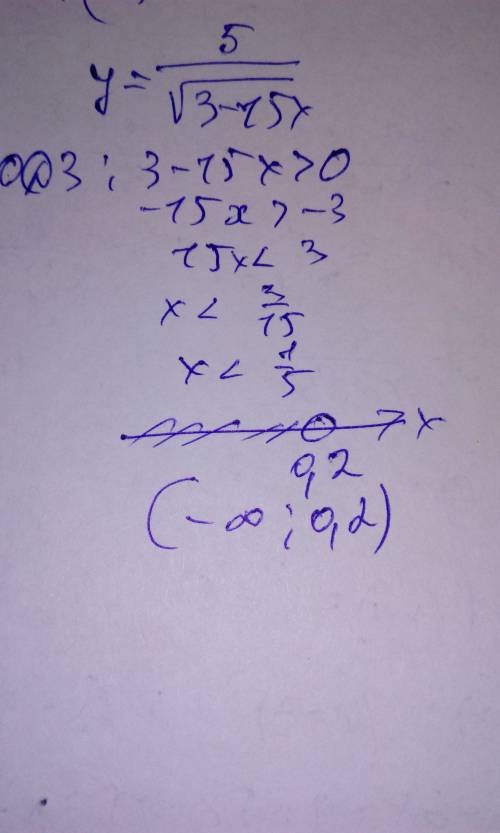 y = 5/√(3-15x)
ООЗ: 3-15x>0
-15x > -3
15x < 3
x < 3/15
x < 1/5
x
0,2
(-∞; 0,2)